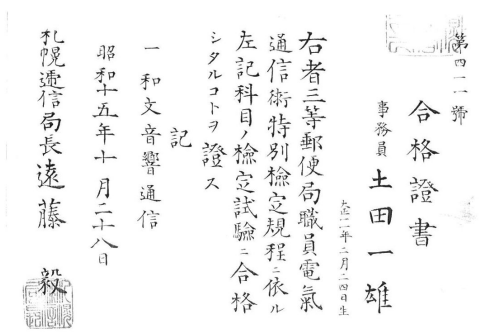 第四一一號
合格證書
事務員 土田一雄
大正一一年二月二四日生
右者三等郵便局職員電氣
通信術特別檢定規程ニ依ル
左記科目ノ檢定試驗ニ合格
シタルコトヲ證ス
記
一 和文音響通信
昭和十五年十月二十八日
札幌遞信局長遠藤 毅